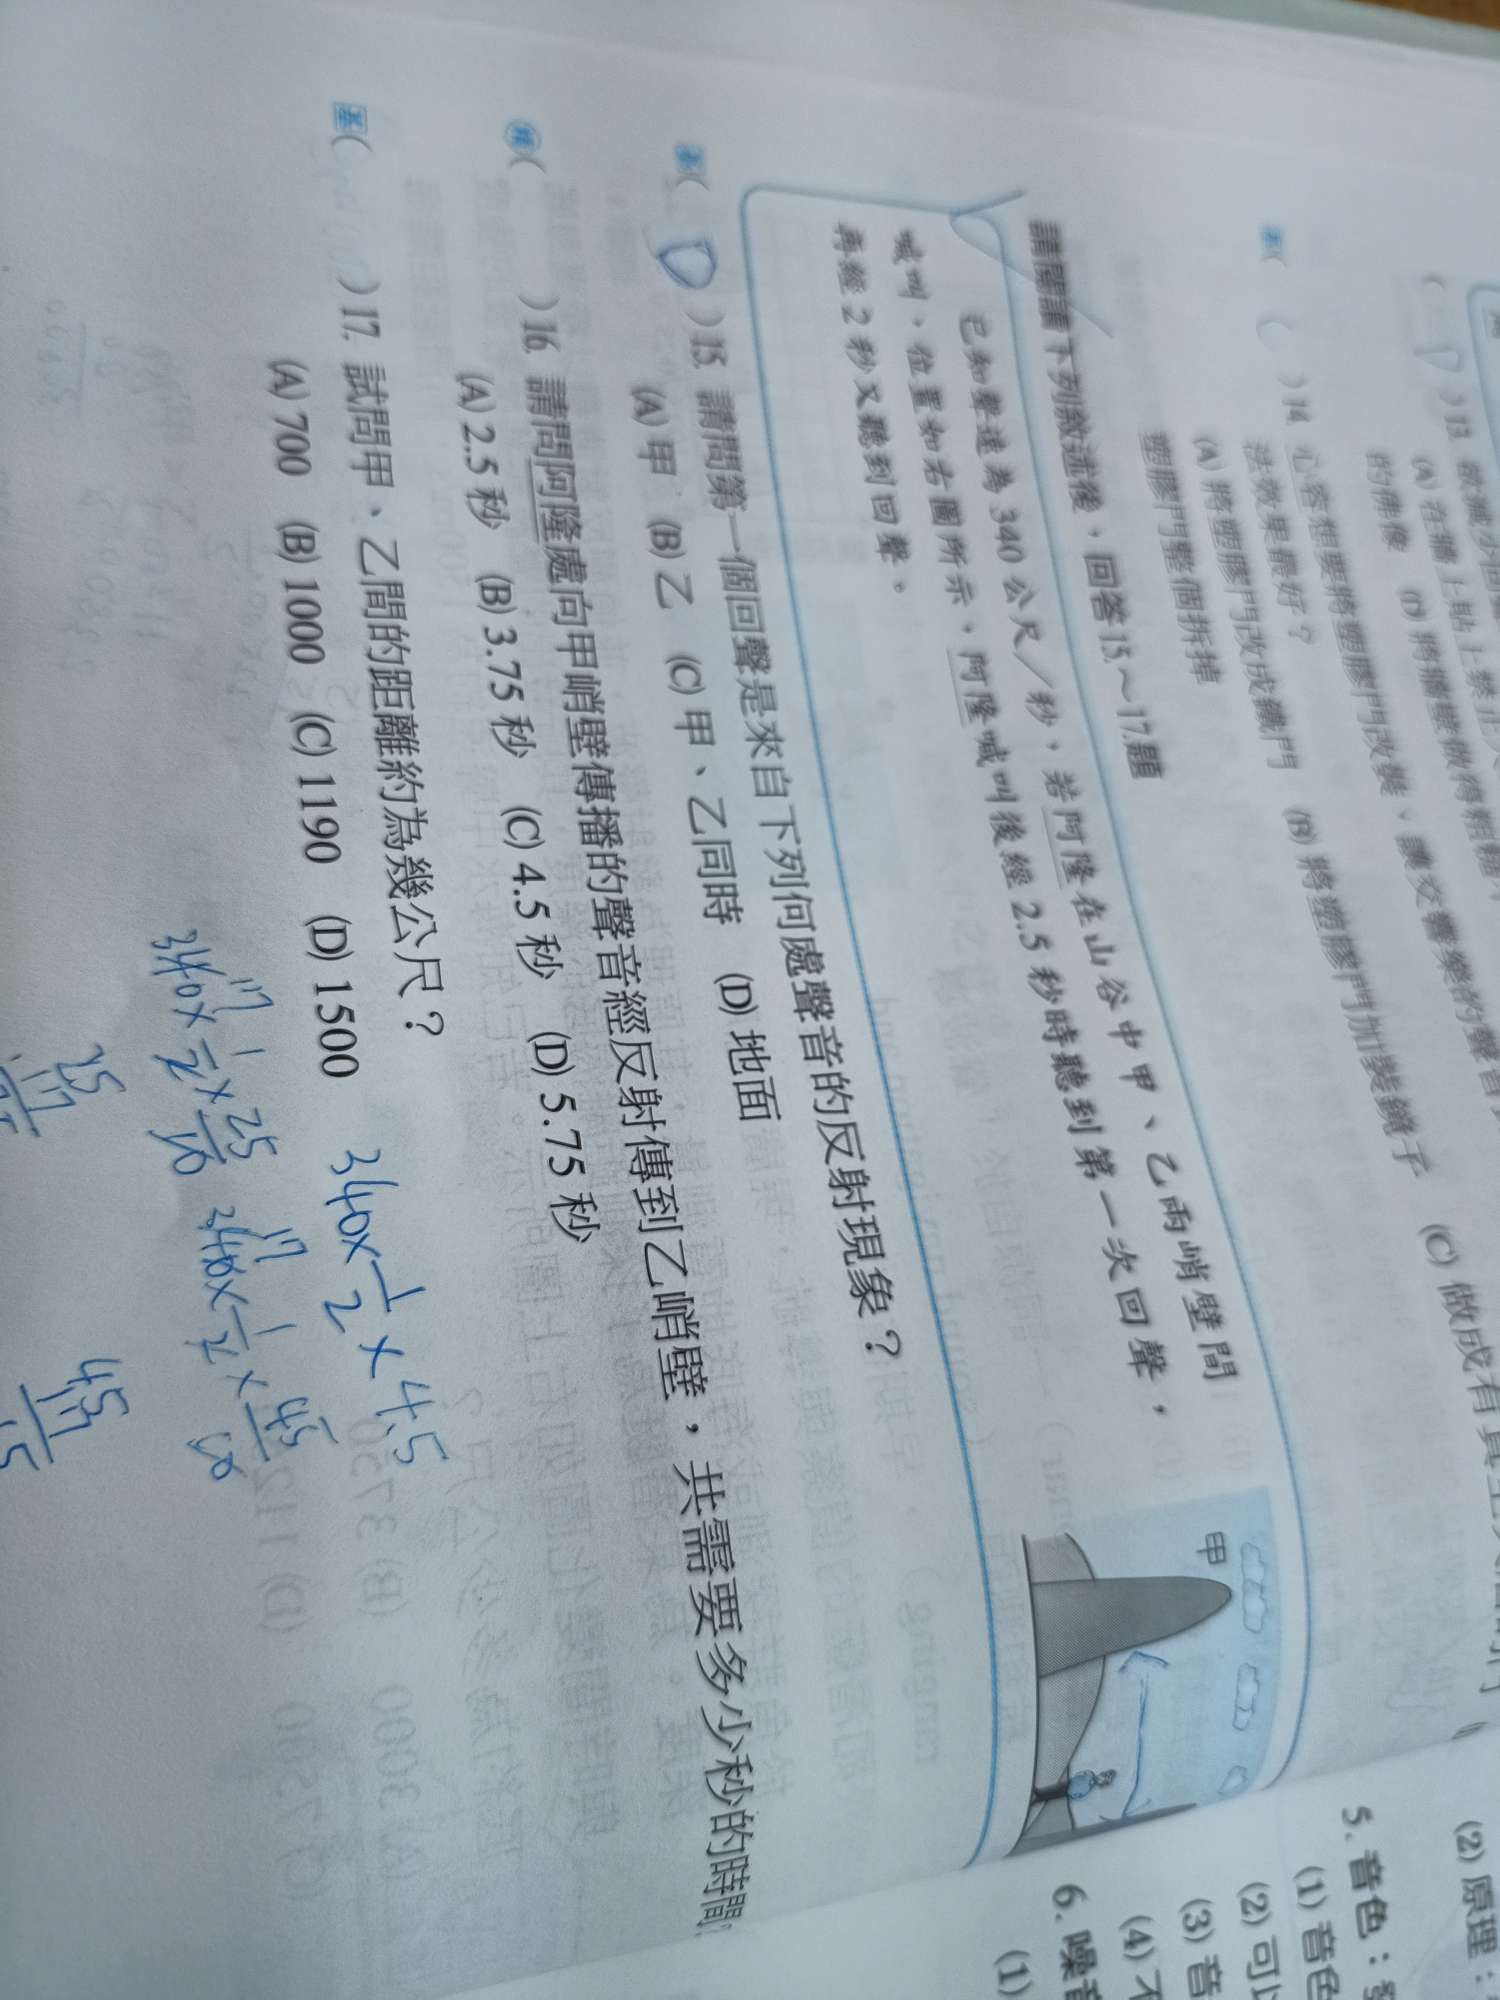 ( D ) 13.
(A) 在牆上貼上禁止
的佛像 (D) 將牆壁做得粗糙
( ) 14. 心蓉想要將塑膠門改裝，讓交響樂的聲音
法效果最好？
(A) 將塑膠門改成鐵門 (B) 將塑膠門加裝鏡子 (C) 做成有
塑膠門整個拆掉
請閱讀下列敘述後，回答15.～17.題
已知聲速為 340 公尺／秒，若阿隆在山谷中甲、乙兩峭壁間
喊叫，位置如右圖所示，阿隆喊叫後經 2.5 秒時聽到第一次回聲，
再經 2 秒又聽到回聲。
甲
( D ) 15. 請問第一個回聲是來自下列何處聲音的反射現象？
(A) 甲 (B) 乙 (C) 甲、乙同時 (D) 地面
( ) 16. 請問阿隆處向甲峭壁傳播的聲音經反射傳到乙峭壁，共需要多少秒的時間？
(A) 2.5 秒 (B) 3.75 秒 (C) 4.5 秒 (D) 5.75 秒
基( ) 17. 試問甲、乙間的距離約為幾公尺？
(A) 700 (B) 1000 (C) 1190 (D) 1500
340×1/2×4.5
17
340×1/2×25/10
17
340×1/2×45/10
25
17
45
17
(2) 原理：
5. 音色：
(1) 音色
(2) 可以
(3) 音
(4) 不
6. 噪音
(1)